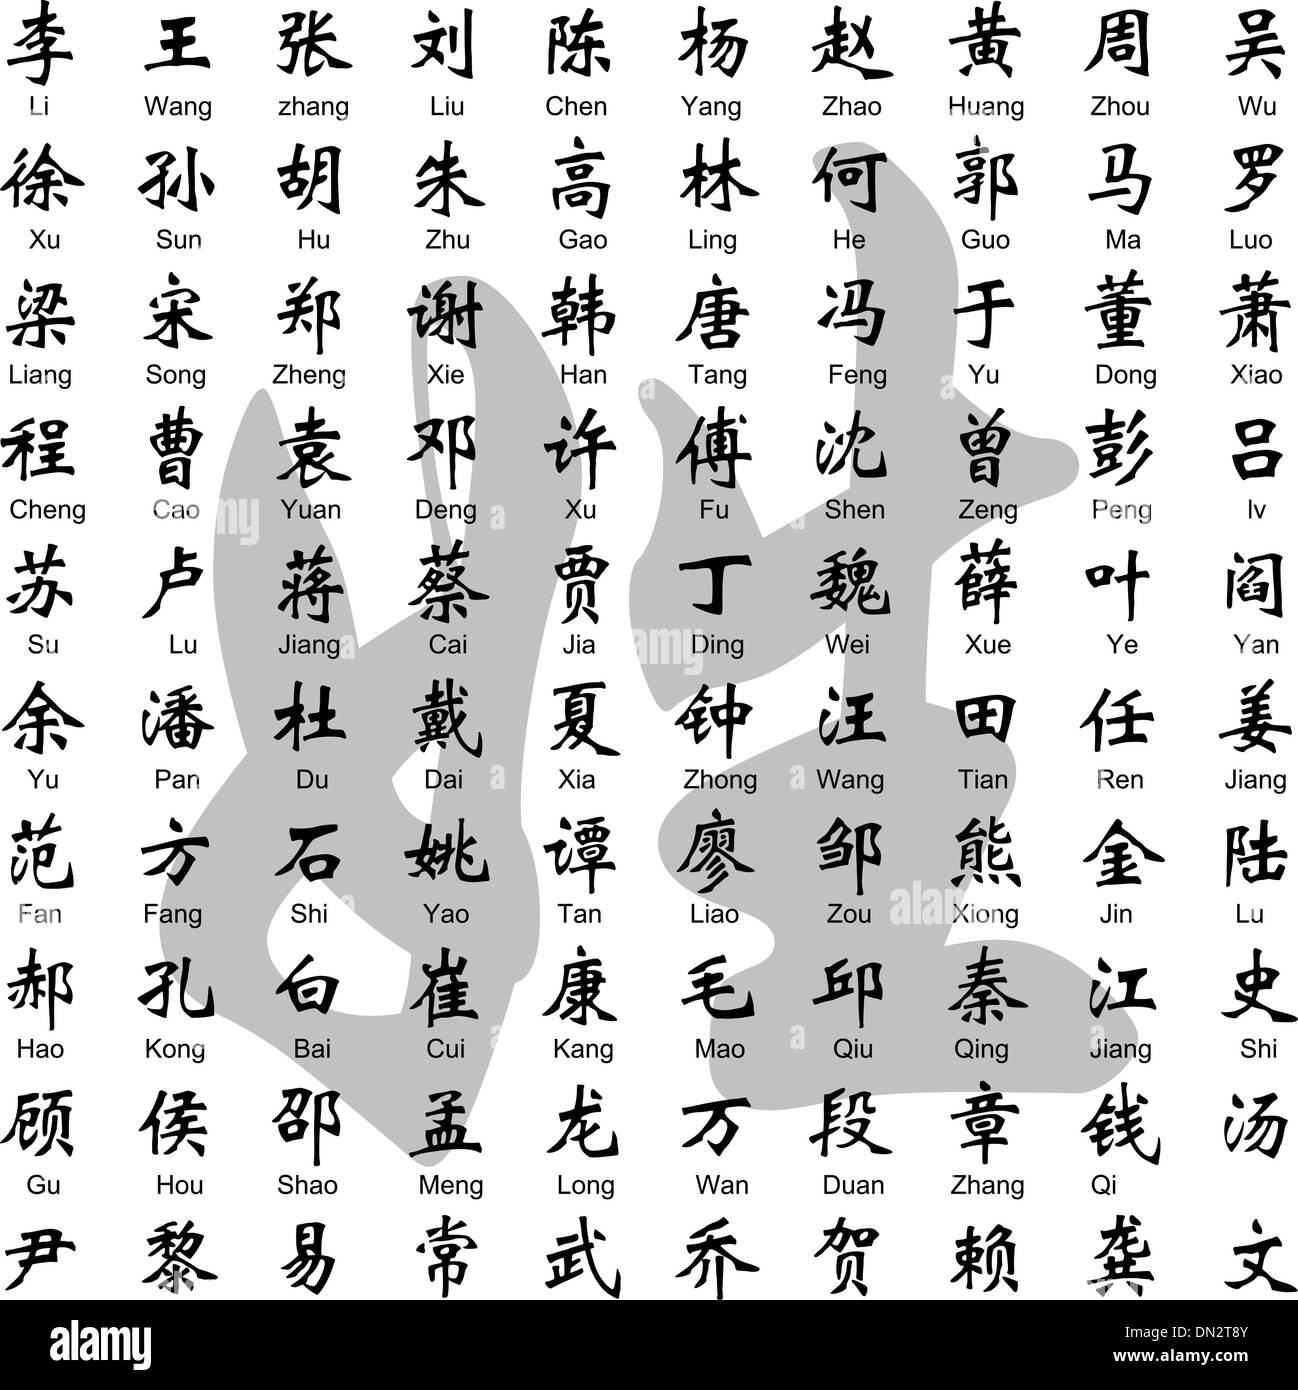 李 王 张 刘 陈 杨 赵 黄 周 吴
Li Wang zhang Liu Chen Yang Zhao Huang Zhou Wu
徐 孙 胡 朱 高 林 何 郭 马 罗
Xu Sun Hu Zhu Gao Ling He Guo Ma Luo
梁 宋 郑 谢 韩 唐 冯 于 董 萧
Liang Song Zheng Xie Han Tang Feng Yu Dong Xiao
程 曹 袁 邓 许 傅 沈 曾 彭 吕
Cheng Cao Yuan Deng Xu Fu Shen Zeng Peng lv
苏 卢 蒋 蔡 贾 丁 魏 薛 叶 阎
Su Lu Jiang Cai Jia Ding Wei Xue Ye Yan
余 潘 杜 戴 夏 钟 汪 田 任 姜
Yu Pan Du Dai Xia Zhong Wang Tian Ren Jiang
范 方 石 姚 谭 廖 邹 熊 金 陆
Fan Fang Shi Yao Tan Liao Zou Xiong Jin Lu
郝 孔 白 崔 康 毛 邱 秦 江 史
Hao Kong Bai Cui Kang Mao Qiu Qing Jiang Shi
顾 侯 邵 孟 龙 万 段 章 钱 汤
Gu Hou Shao Meng Long Wan Duan Zhang Qi
尹 黎 易 常 武 乔 贺 赖 龚 文
姓
alamy
alamy
alamy
alamy
a
a
a
a
alamy
Image ID: DN2T8Y
www.alamy.com